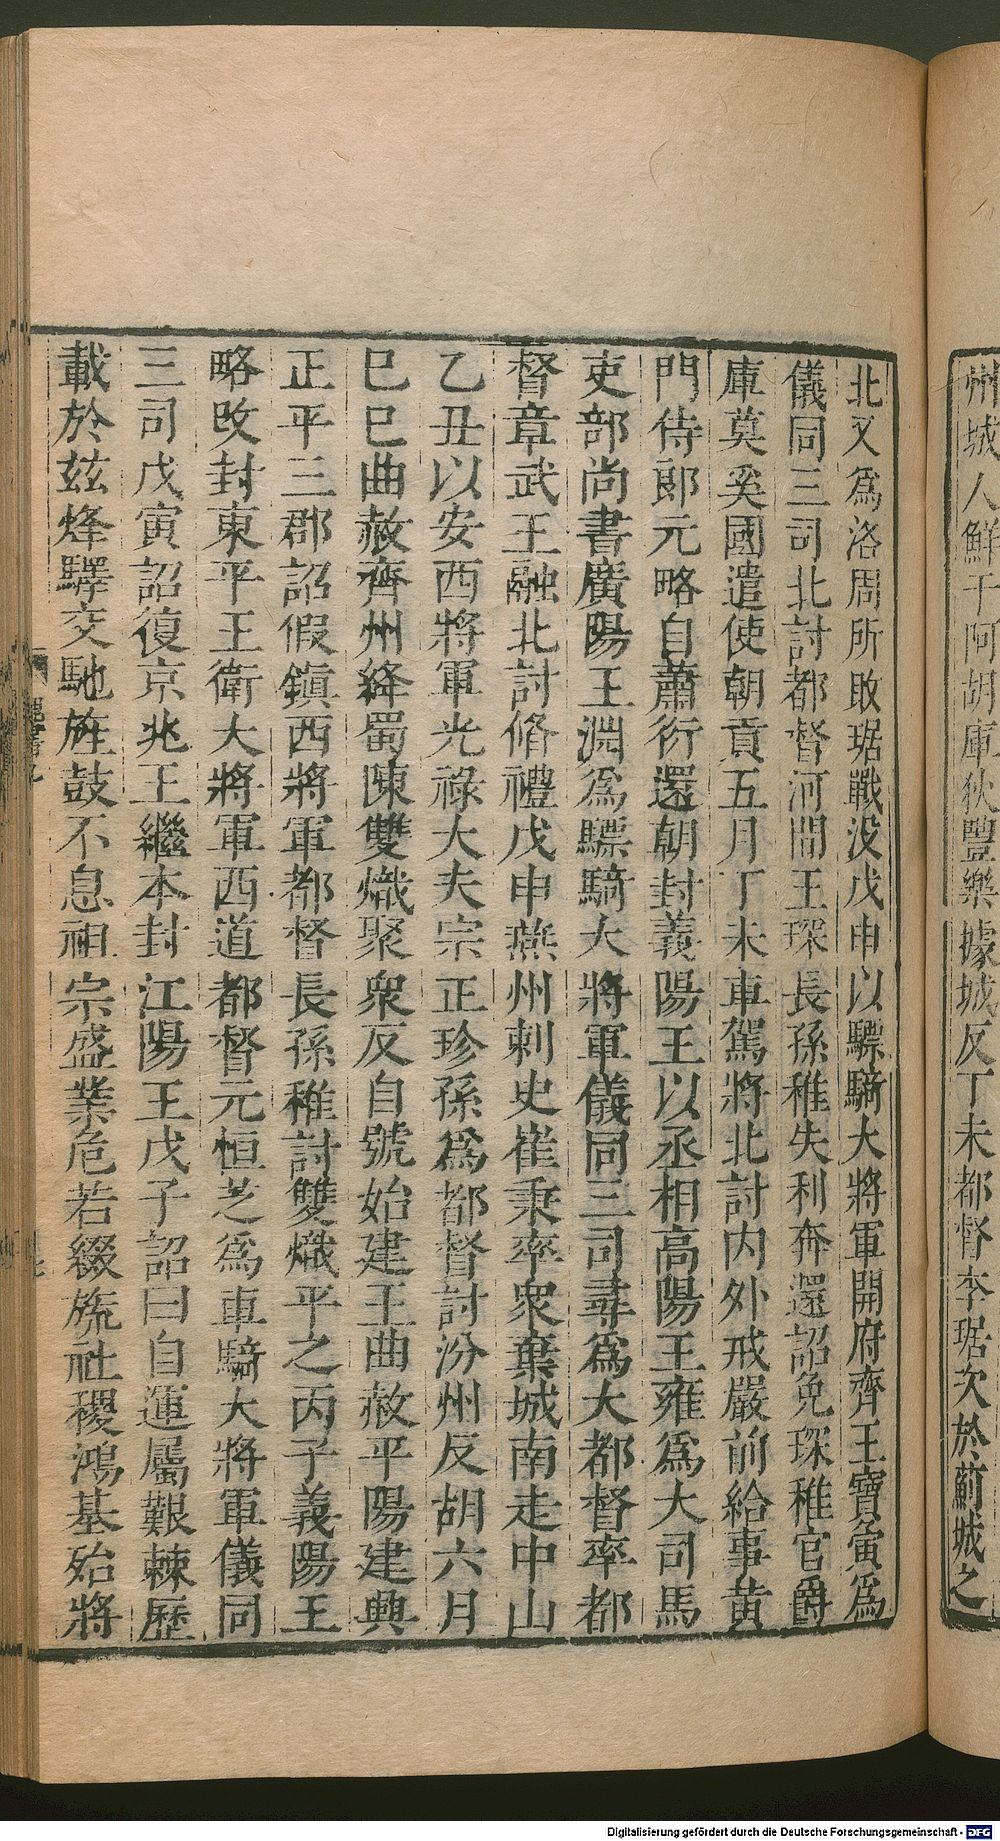 州城人鮮于阿胡庫狄豐樂據城反丁未都督李琚次於薊城之
北又爲洛周所敗琚戰没戊申以驃騎大將軍開府齊王寶寅爲
儀同三司北討都督河間王琛長孫稚失利奔還詔免琛稚官爵
庫莫奚國遣使朝貢五月丁未車駕將北討内外戒嚴前給事黄
門侍郎元略自蕭衍還朝封義陽王以丞相高陽王雍爲大司馬
吏部尚書廣陽王淵爲驃騎大將軍儀同三司尋爲大都督率都
督章武王融北討脩禮戊申燕州刺史崔秉率衆棄城南走中山
乙丑以安西將軍光祿大夫宗正珍孫爲都督討汾州反胡六月
巳巳曲赦齊州絳蜀陳雙熾聚衆反自號始建王曲赦平陽建興
正平三郡詔假鎭西將軍都督長孫稚討雙熾平之丙子義陽王
略改封東平王衛大將軍西道都督元恒芝爲車騎大將軍儀同
三司戊寅詔復京兆王繼本封江陽王戊子詔曰自運屬艱棘歷
載於兹烽驛交馳旌鼓不息祖宗盛業危若綴旒社稷鴻基殆將
Digitalisierung gefördert durch die Deutsche Forschungsgemeinschaft - DFG